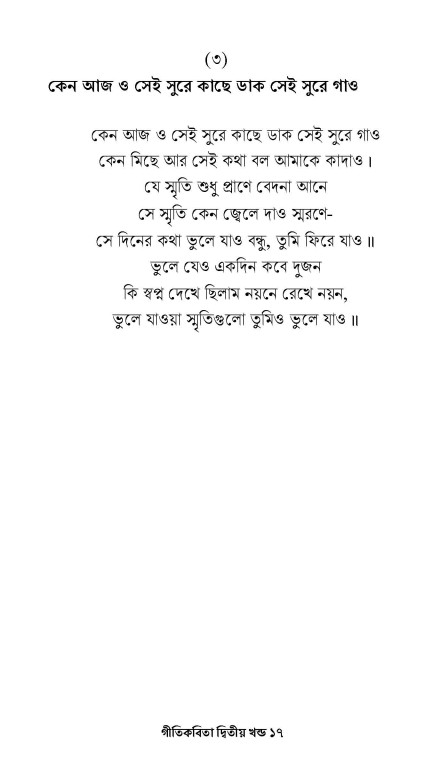 (৩)
কেন আজ ও সেই সুরে কাছে ডাক সেই সুরে গাও
কেন আজ ও সেই সুরে কাছে ডাক সেই সুরে গাও
কেন মিছে আর সেই কথা বল আমাকে কাদাও।
যে স্মৃতি শুধু প্রাণে বেদনা আনে
সে স্মৃতি কেন জ্বেলে দাও স্মরণে-
সে দিনের কথা ভুলে যাও বন্ধু, তুমি ফিরে যাও॥
ভুলে যেও একদিন কবে দুজন
কি স্বপ্ন দেখে ছিলাম নয়নে রেখে নয়ন,
ভুলে যাওয়া স্মৃতিগুলো তুমিও ভুলে যাও॥
গীতিকবিতা দ্বিতীয় খন্ড ১৭